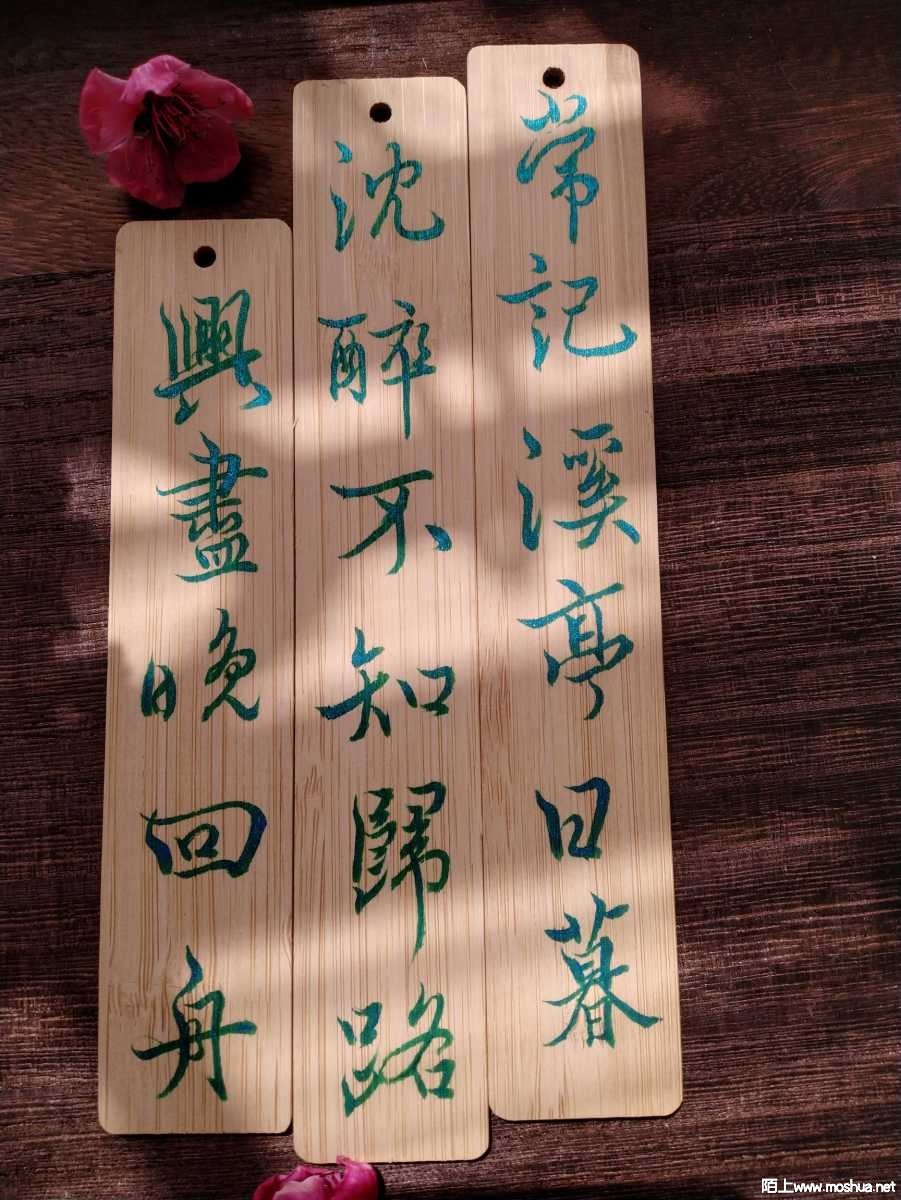 常記溪亭日暮
沈醉不知歸路
興盡晚回舟
陌上www.moshua.net